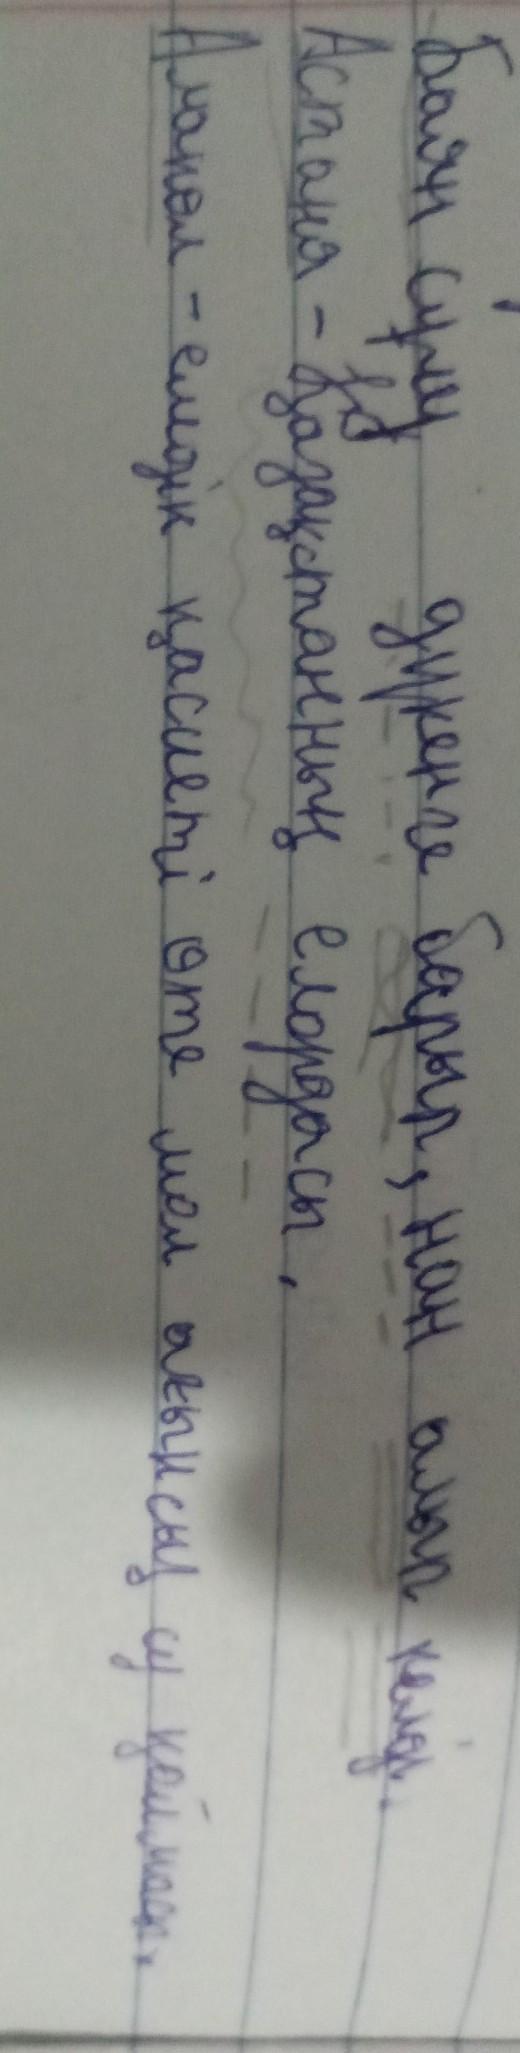 Баян сұлу дүкенге барып, нан алып келді.
Астана - Қазақстанның елордасы.
Алакөл - емдік қасиеті өте мол ағынсыз су қоймасы.